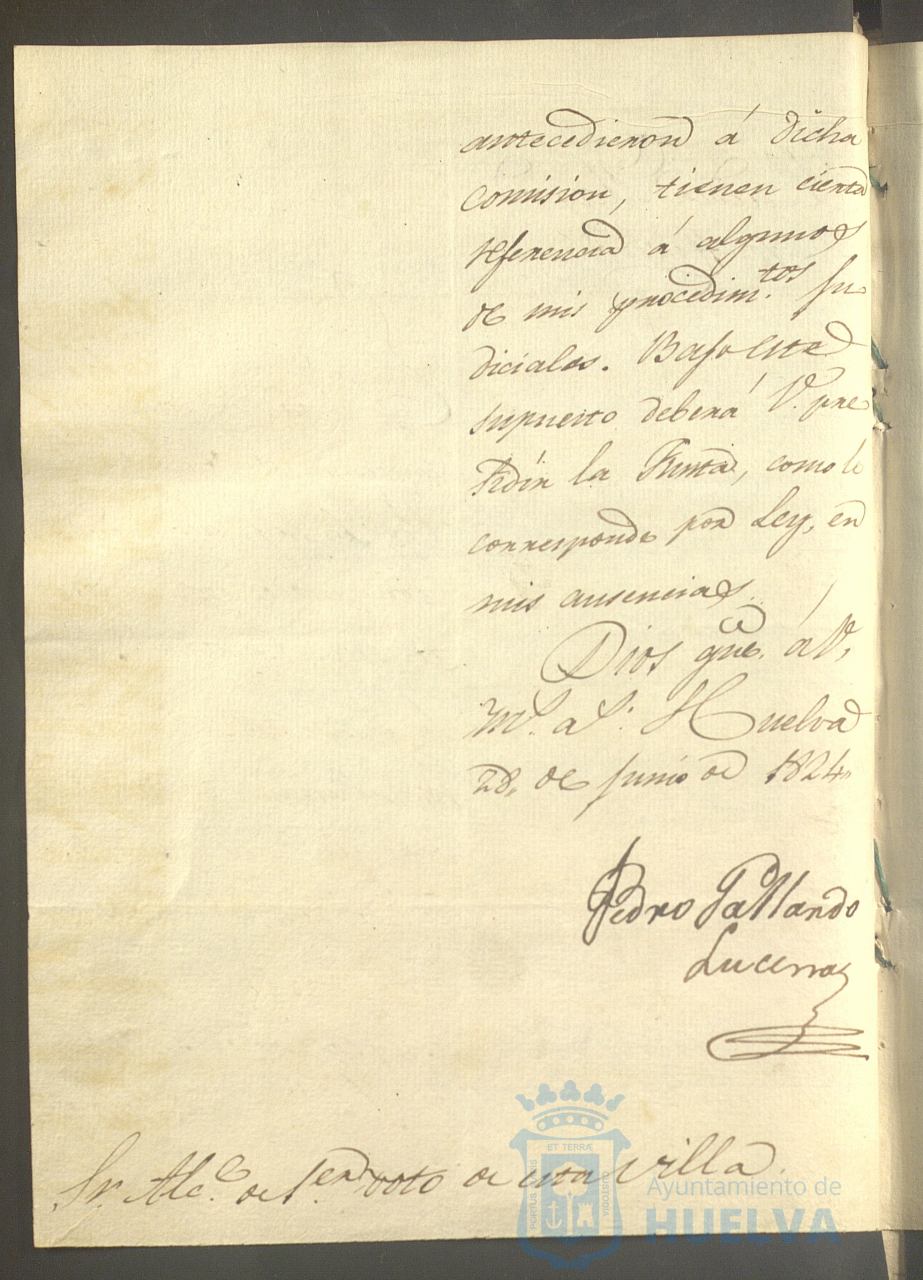 antecedieron á dicha
comision, tienen cierta
referencia á algunos
de mis procedim.tos Ju
diciales. Bajo este
supuesto deberá V. pre
sidir la Junta, como le
corresponde por Ley, en
mis ausencias.
Dios gue. á V.
m.s a.s Huelva
28, de Junio de 1824,
Pedro Gallando
Lucena
Sr. Alc.e de 1.er voto de esta villa.
PORTUS MARIS
ET TERRÆ
CUSTODIA
Ayuntamiento de
HUELVA